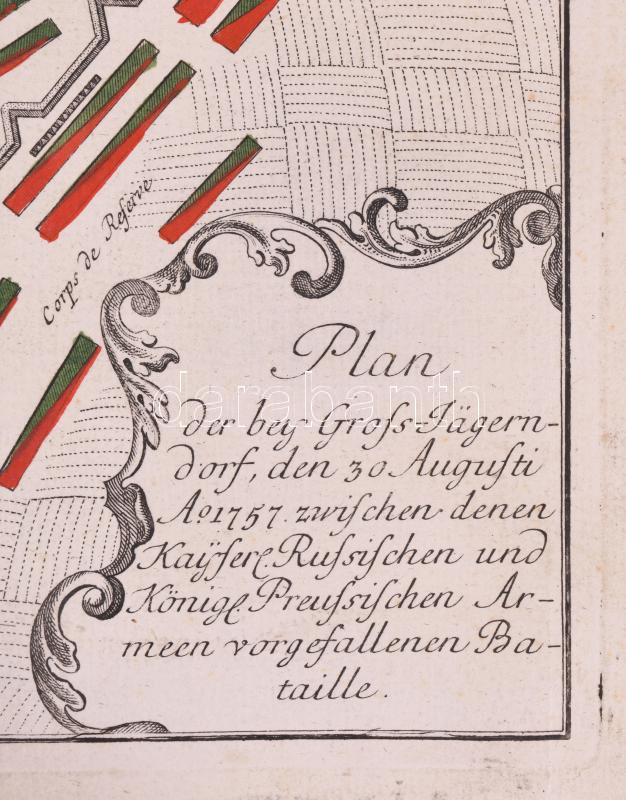 Corps de Reſerve
Plan
der bey Groſs-Jägern-
dorf, den 30 Auguſti
Aº. 1757. zwiſchen denen
Kaÿſerl. Ruſsiſchen und
Königl. Preuſsiſchen Ar-
meen vorgefallenen Ba-
taille.
darabanth